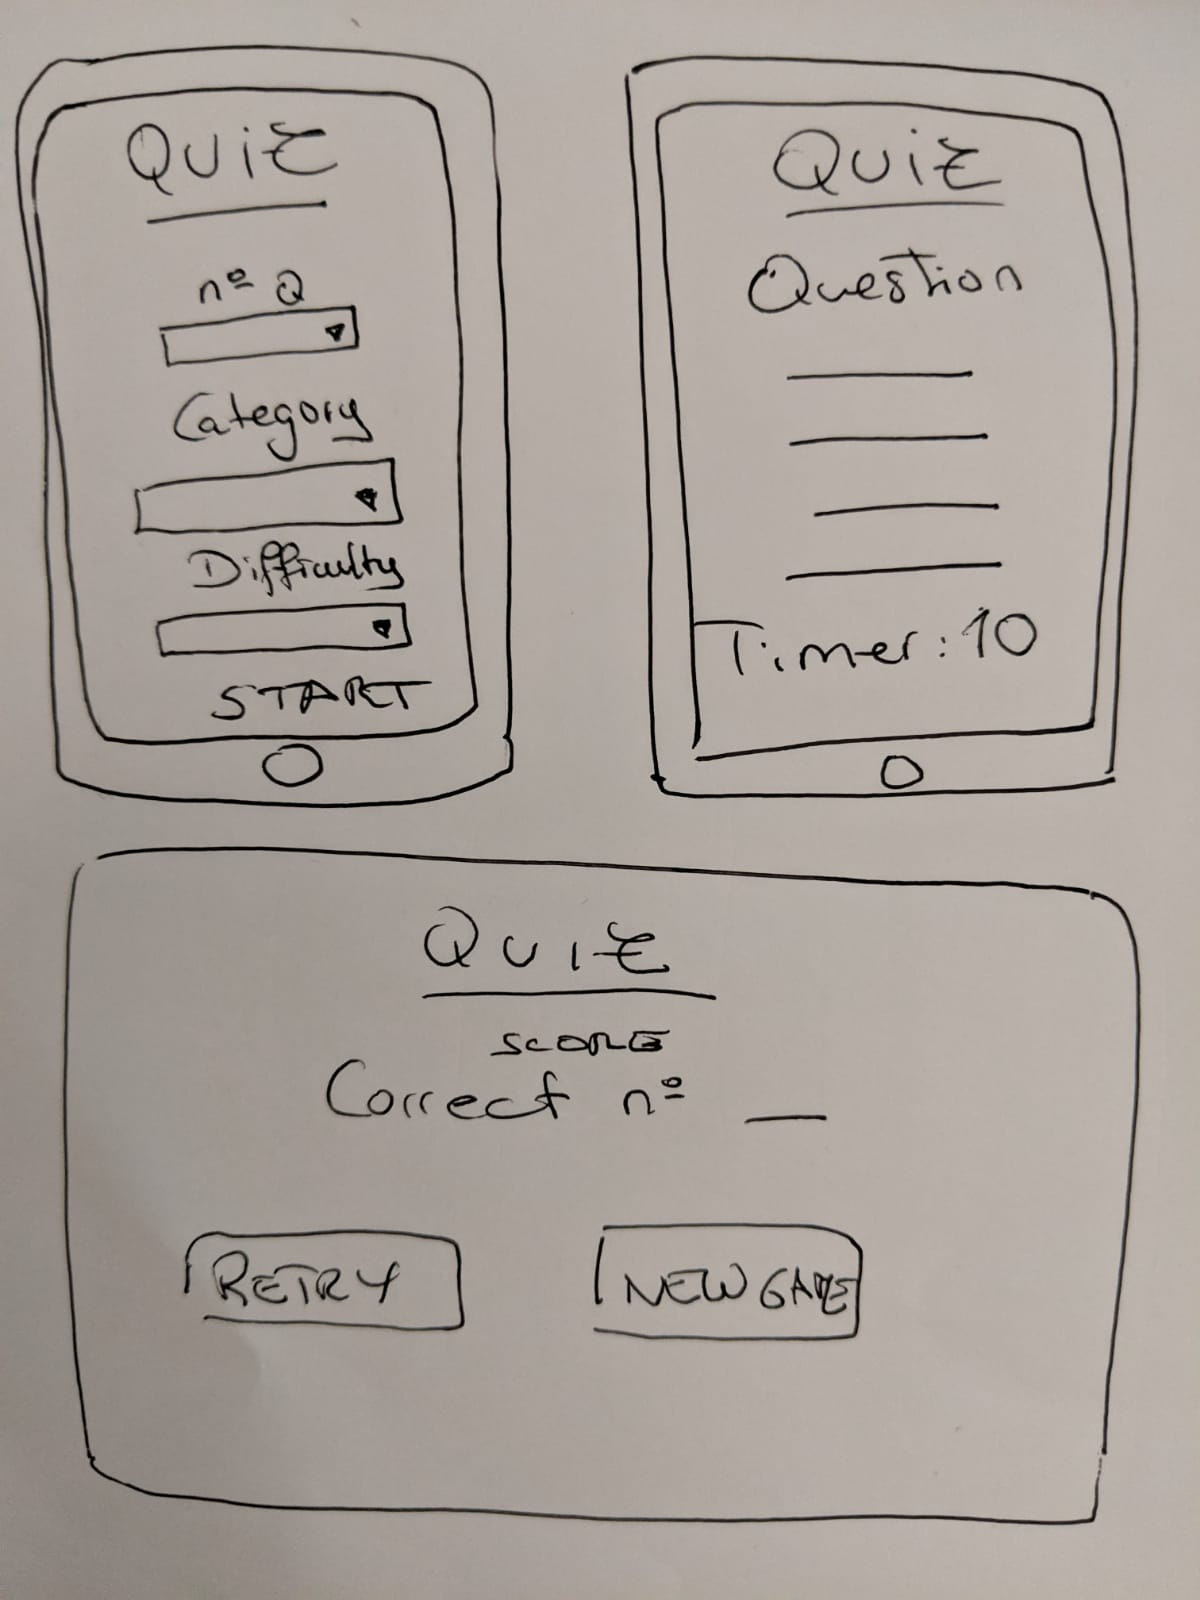 QUIZ
nº Q
Category
Difficulty
START
QUIZ
Question
Timer: 10
QUIZ
SCORE
Correct nº __
RETRY
NEW GAME